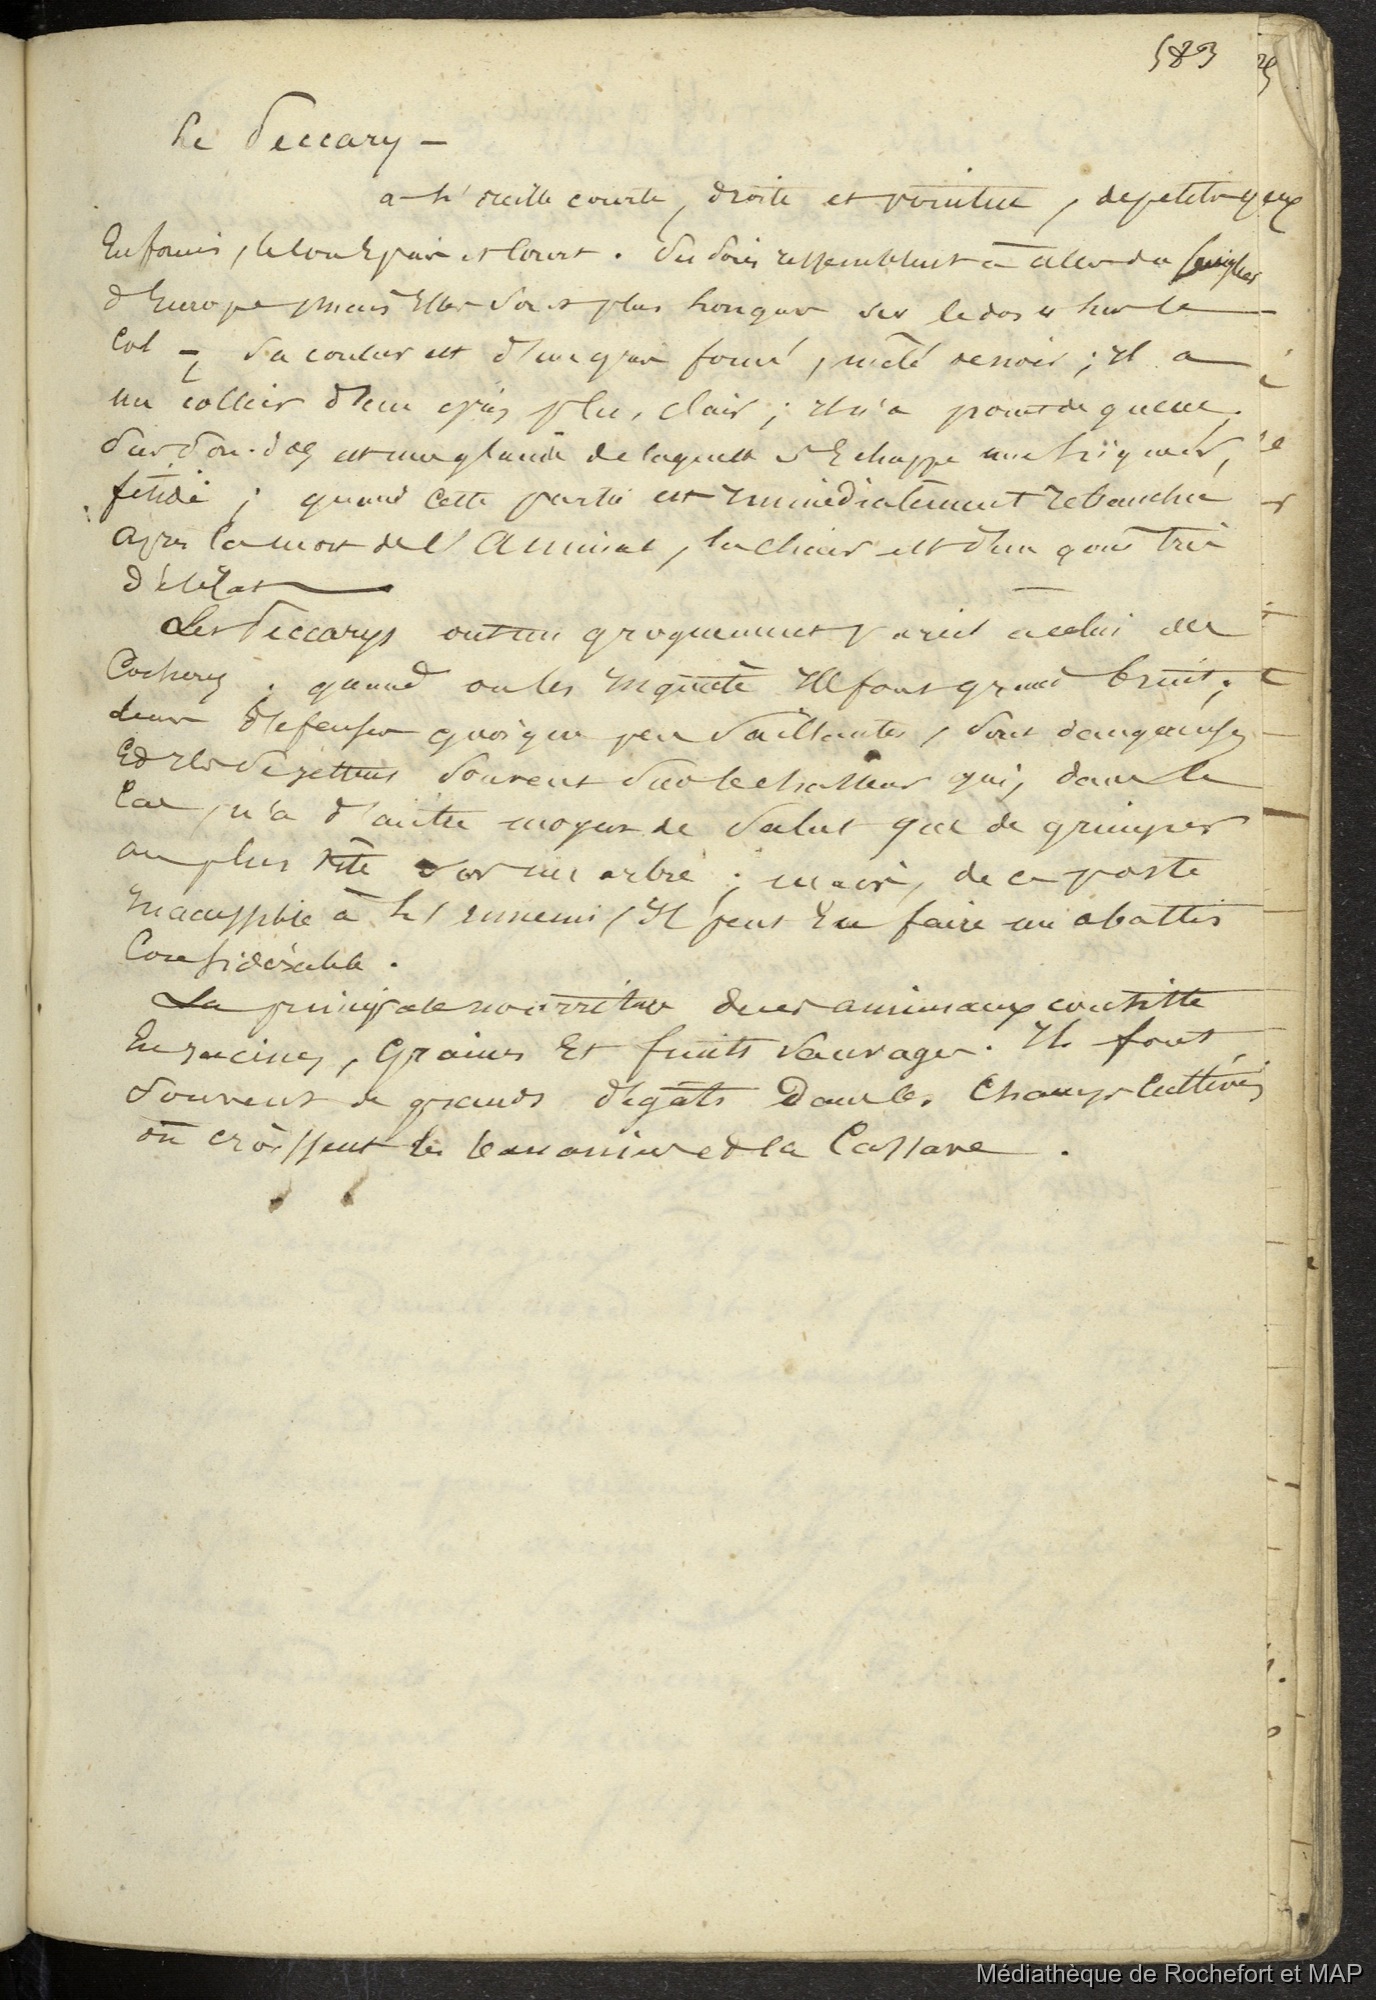 583
Le Peccary —
a l'oreille courte, droite et pointue, de petits yeux
Enfoncés, le cou Epais et Court. Ses soies ressemblent à celles du sanglier
d'Europe, mais Elles sont plus longues sur le dos et sur le
Col — Sa couleur est d'un gris foncé, mêlé de noir ; Il a
un collier d'un gris plus clair ; Il n'a point de queue.
Sur son dos est une glande de laquelle s'Echappe une liqueur
fétide ; quand Cette partie est Immédiatement retranchée
après la mort de l'Animal, la Chair est d'un gout très
délicat
Les Peccarys ont un grognement pareil à celui des
Cochons ; quand on les Inquiète Ils font grand bruit ;
leurs défenses quoique peu saillantes, sont dangereuses
Et Ils se jettent souvent sur le chasseur qui, dans le
Cas, n'a d'autre moyen de salut que de grimper
au plus vite sur un arbre ; mais, de ce poste
Inaccessible à ses Ennemis, Il peut En faire un abattis
Considérable.
La principale nourriture de ces animaux consiste
En racines, Graines Et fruits sauvages. Ils font
souvent de grands dégâts Dans les Champs Cultivés
où croissent les bananiers et la Cassave.
Médiathèque de Rochefort et MAP